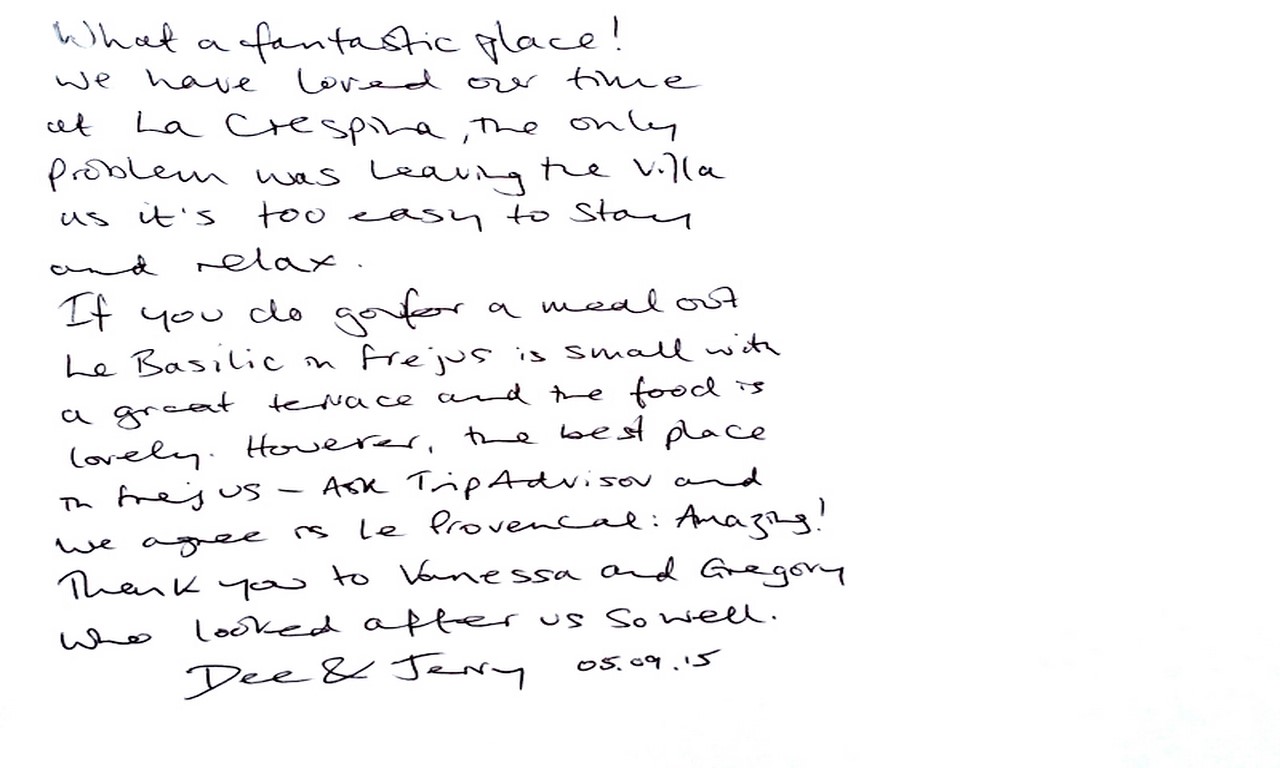 What a fantastic place!
We have loved our time
at La Crespina, the only
problem was leaving the Villa
as it's too easy to stay
and relax.
If you do go for a meal out
Le Basilic in frejus is small with
a great terrace and the food is
lovely. However, the best place
in frejus - Ask TripAdvisor and
we agree is le Provencal: Amazing!
Thank you to Vanessa and Gregory
who looked after us so well.
Dee & Jerry 05.09.15